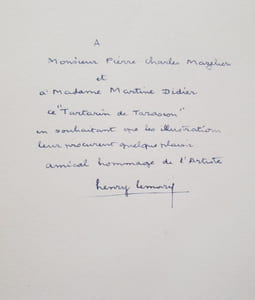 A
Monsieur Pierre Charles Mazelier
et
à Madame Martine Didier
ce "Tartarin de Tarascon"
en souhaitant que les illustration
leur procurent quelque plaisir
amical hommage de l'Artiste
henry lemarié